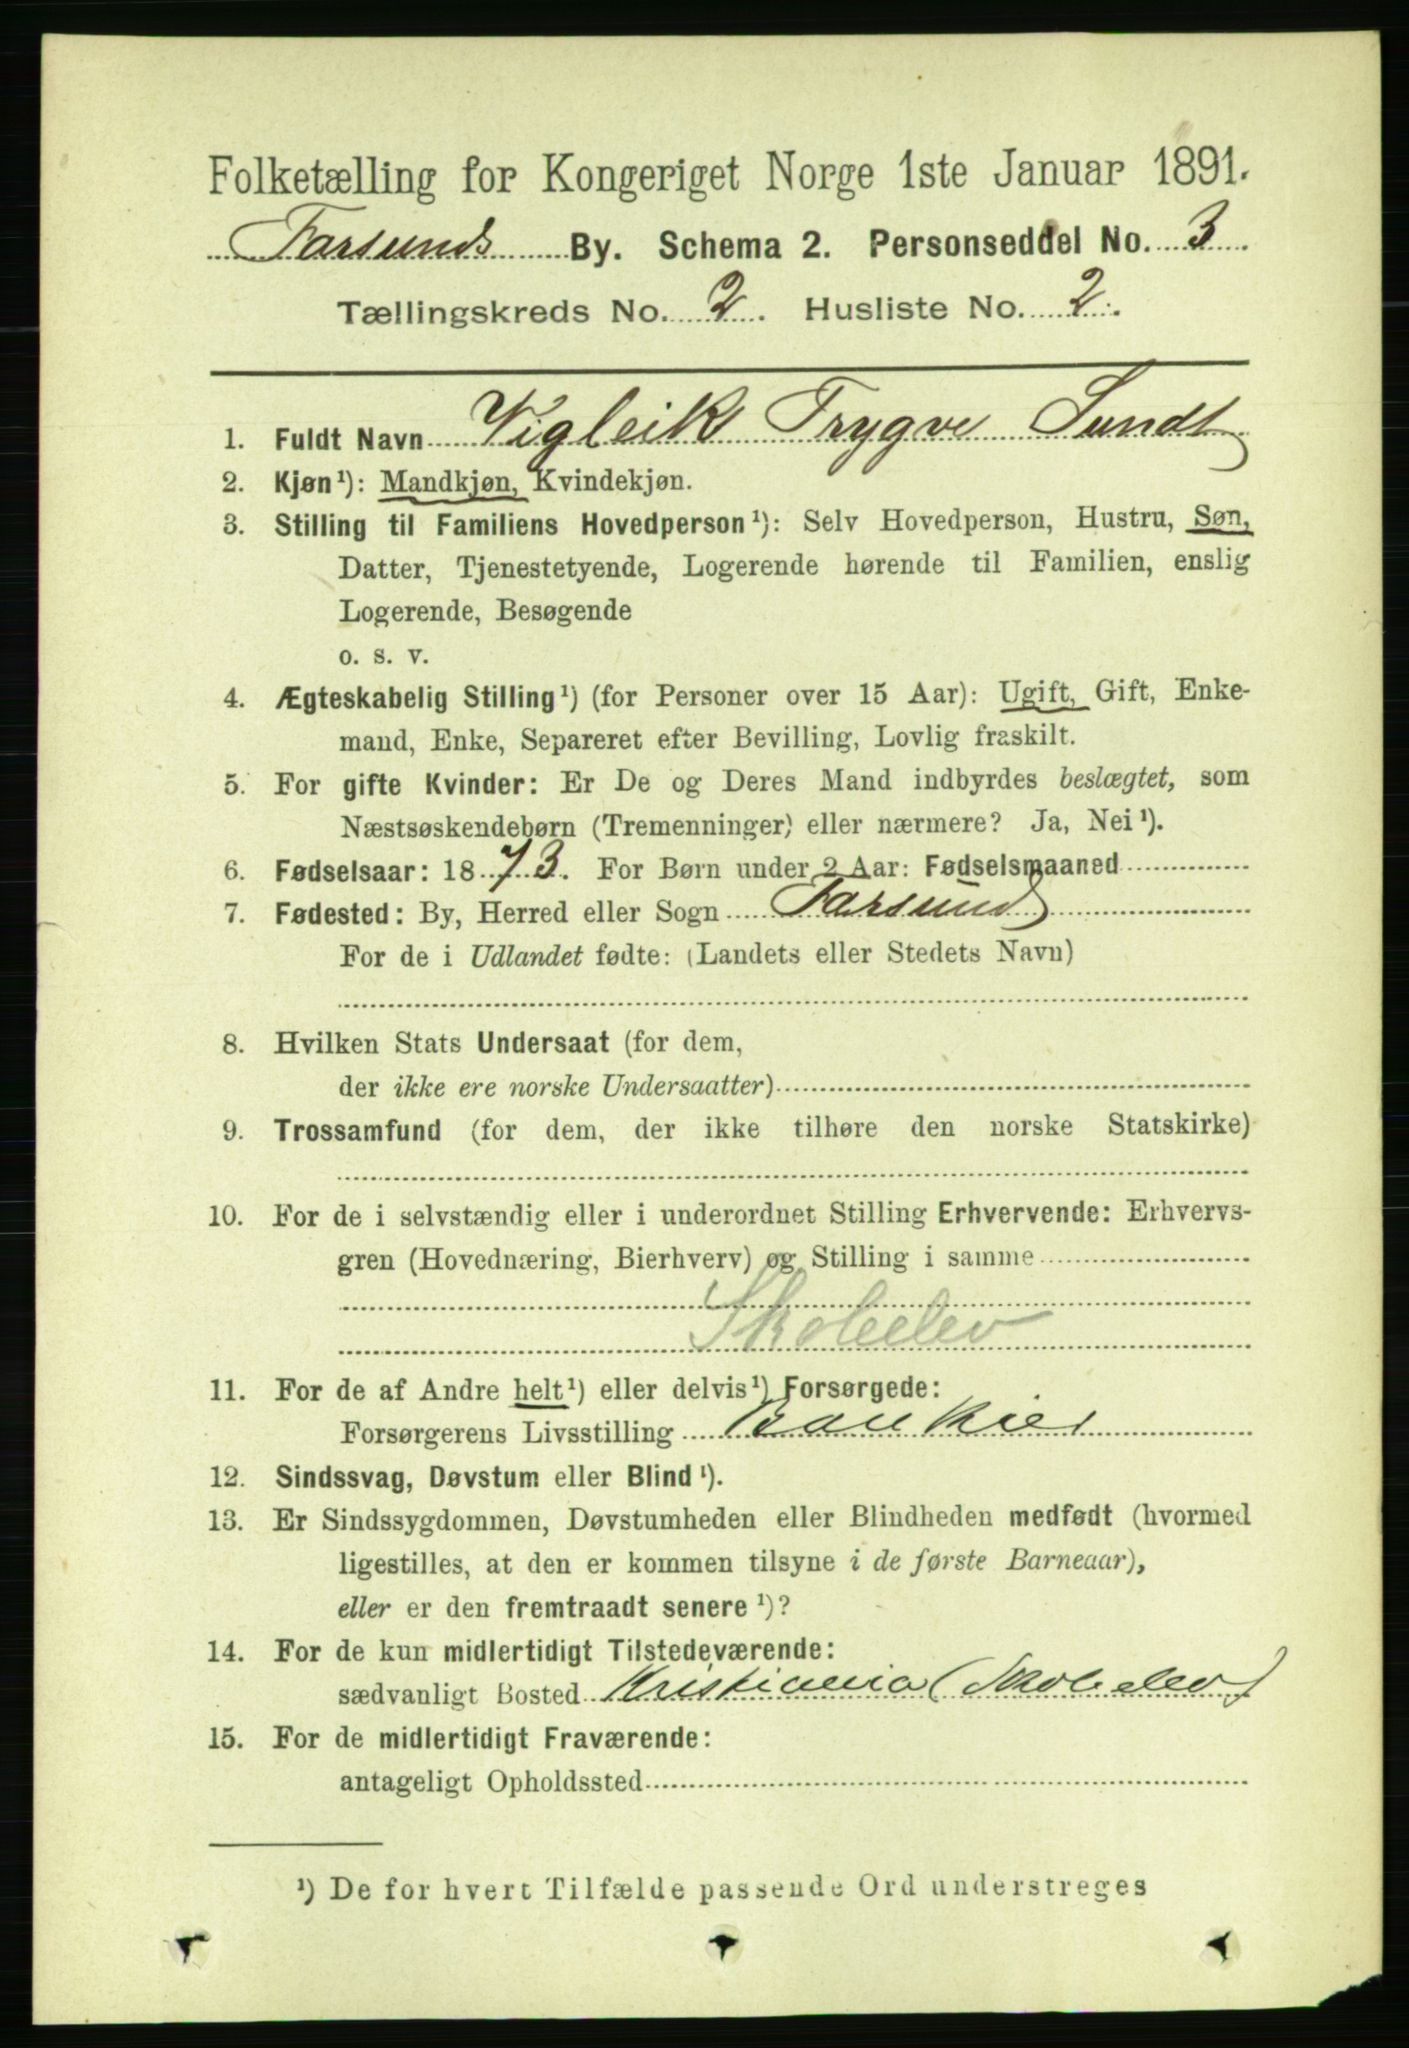 Folketælling for Kongeriget Norge 1ste Januar 1891.
Farsunds By. Schema 2. Personseddel No. 3.
Tællingskreds No. 2. Husliste No. 2.
1. Fuldt Navn Vigleik Trygve Sundt
2. Kjøn¹): Mandkjøn, Kvindekjøn.
3. Stilling til Familiens Hovedperson¹): Selv Hovedperson, Hustru, Søn,
Datter, Tjenestetyende, Logerende hørende til Familien, enslig
Logerende, Besøgende
o. s. v.
4. Ægteskabelig Stilling¹) (for Personer over 15 Aar): Ugift, Gift, Enke-
mand, Enke, Separeret efter Bevilling, Lovlig fraskilt.
5. For gifte Kvinder: Er De og Deres Mand indbyrdes beslægtet, som
Næstsøskendebørn (Tremenninger) eller nærmere? Ja, Nei¹).
6. Fødselsaar: 1873. For Børn under 2 Aar: Fødselsmaaned
7. Fødested: By, Herred eller Sogn Farsund
For de i Udlandet fødte: (Landets eller Stedets Navn)
8. Hvilken Stats Undersaat (for dem,
der ikke ere norske Undersaatter)
9. Trossamfund (for dem, der ikke tilhøre den norske Statskirke)
10. For de i selvstændig eller i underordnet Stilling Erhvervende: Erhvervs-
gren (Hovednæring, Bierhverv) og Stilling i samme
Skoleelev
11. For de af Andre helt¹) eller delvis¹) Forsørgede:
Forsørgerens Livsstilling Bankier
12. Sindssvag, Døvstum eller Blind¹).
13. Er Sindssygdommen, Døvstumheden eller Blindheden medfødt (hvormed
ligestilles, at den er kommen tilsyne i de første Barneaar),
eller er den fremtraadt senere¹)?
14. For de kun midlertidigt Tilstedeværende:
sædvanligt Bosted Kristiania (Skoleelev)
15. For de midlertidigt Fraværende:
antageligt Opholdssted
¹) De for hvert Tilfælde passende Ord understreges